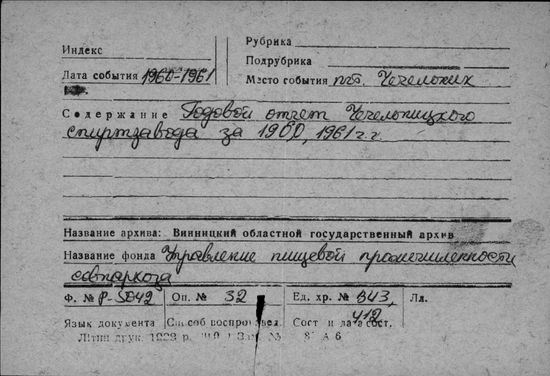 Индекс
Рубрика
Подрубрика
Дата события 1960-1961
Место события пгт. Чечельник
Содержание Годовой отчет Чечельницкого
спиртзавода за 1960, 1961 г.г.
Название архива: Винницкий областной государственный архив
Название фонда Управление пищевой промышленности
совнархоза
Ф. № Р-5042 Оп. № 32 Ед. хр. № 343, Лл.
412
Язык документа Способ воспроизвед. Сост и дата сост.
Літин друк.